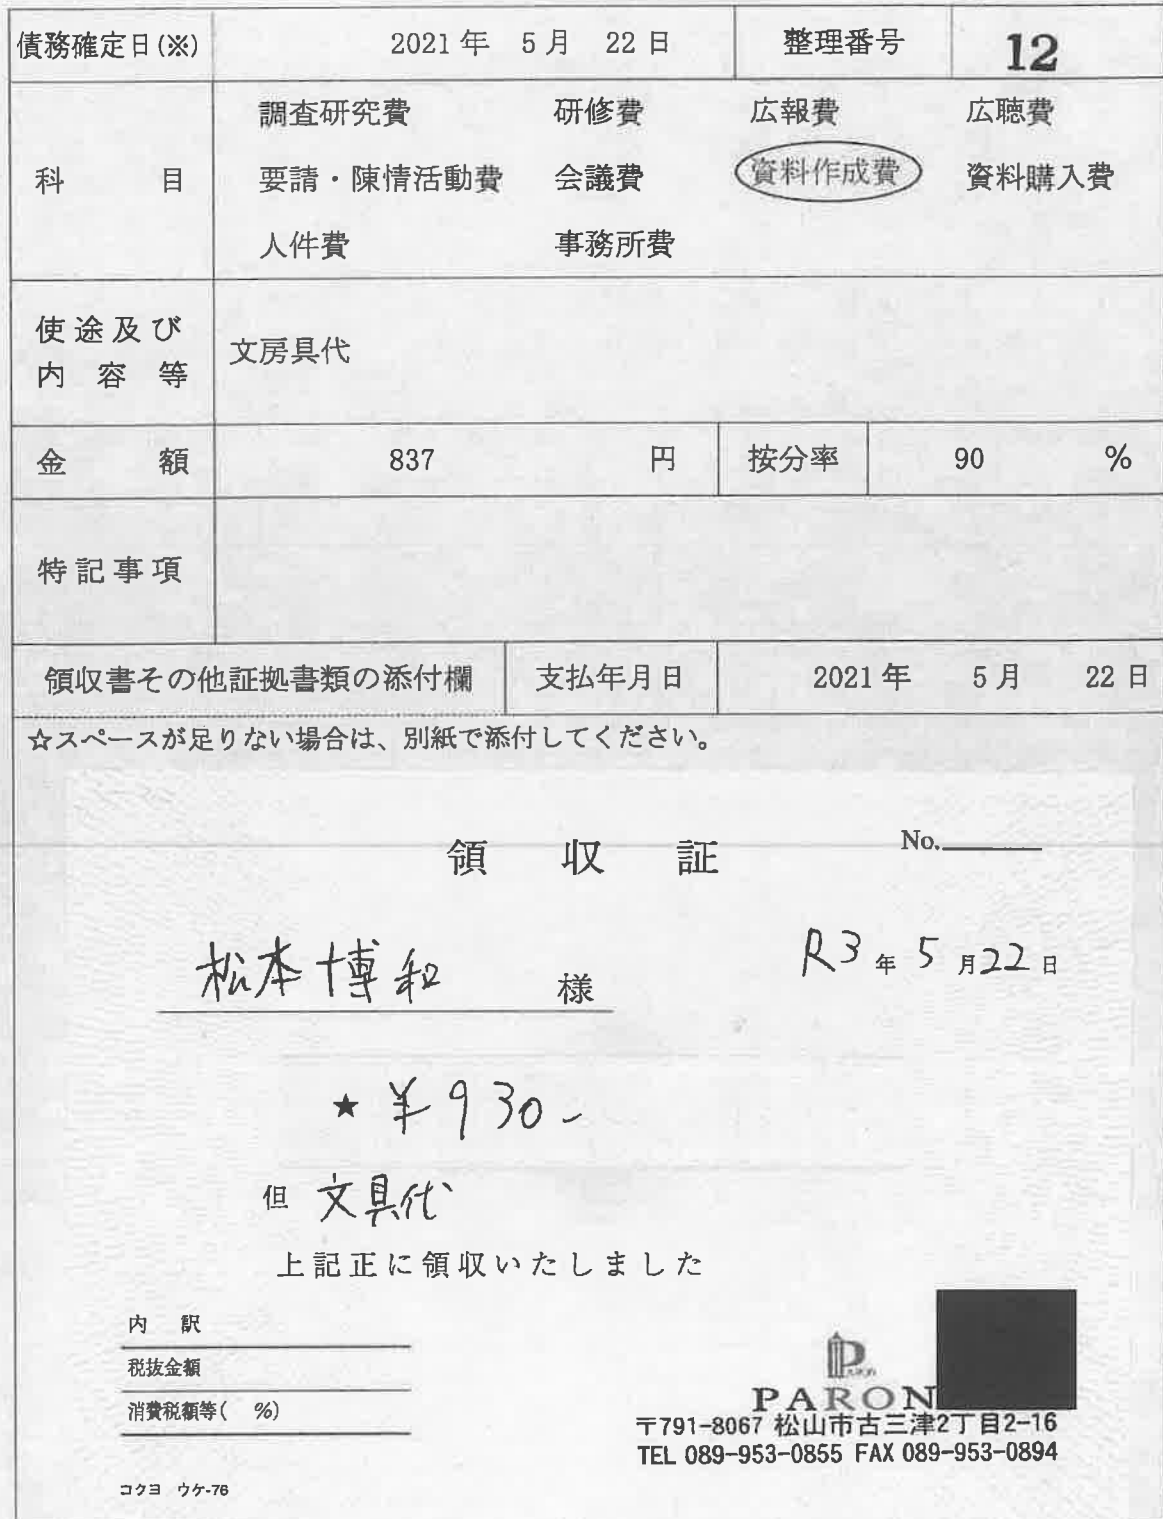 債務確定日(※) 2021年 5月 22日 整理番号 12
調査研究費 研修費 広報費 広聴費
科目 要請・陳情活動費 会議費 資料作成費 資料購入費
人件費 事務所費
使途及び
内容等
文房具代
金額 837 円 按分率 90 %
特記事項
領収書その他証拠書類の添付欄 支払年月日 2021年 5月 22日
☆スペースが足りない場合は、別紙で添付してください。
領収証 No.
松本博和 様 R3年5月22日
★ ¥930-
但 文具代
上記正に領収いたしました
内訳
税抜金額
消費税額等( %)
コクヨ ウケ-76
PARON
〒791-8067 松山市古三津2丁目2-16
TEL 089-953-0855 FAX 089-953-0894